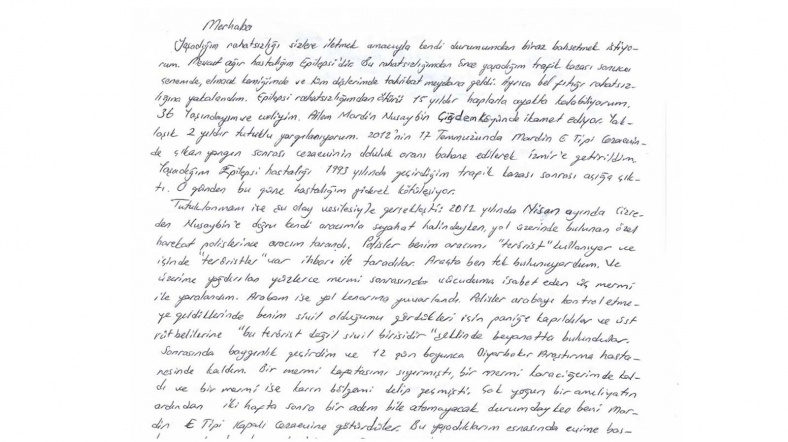 Merhaba
Yaşadığım rahatsızlığı sizlere iletmek amacıyla kendi durumumdan biraz bahsetmek istiyo-
rum. Mevcut ağır hastalığım Epilepsi'dir. Bu rahatsızlığımdan önce yaşadığım trafik kazası sonucu
çenemde, elmacık kemiğimde ve tüm dişlerimde tahribat meydana geldi. Ayrıca bel fıtığı rahatsız-
lığına yakalandım. Epilepsi rahatsızlığımdan ötürü 15 yıldır haplarla ayakta kalabiliyorum.
36 Yaşındayım ve evliyim. Ailem Mardin Nusaybin Çiğdem köyünde ikamet ediyor. Yak-
laşık 2 yıldır tutuklu yargılanıyorum. 2012'nin 17 Temmuzunda Mardin E Tipi Cezaevin-
de çıkan yangın sonrası cezaevinin doluluk oranı bahane edilerek İzmir'e getirildim.
Yaşadığım Epilepsi hastalığı 1993 yılında geçirdiğim trafik kazası sonrası açığa çık-
tı. O günden bu güne hastalığım giderek kötüleşiyor.
Tutuklanmam ise şu olay vesilesiyle gerçekleşti: 2012 yılında Nisan ayında Cizre-
den Nusaybin'e doğru kendi aracımla siyahat halindeyken, yol üzerinde bulunan özel
harekat polislerince aracım tarandı. Polisler benim aracımı "terörist" kullanıyor ve
içinde "teröristler" var ihbarı ile taradılar. Araçta ben tek bulunuyordum. Ve
üzerime yağdırılan yüzlerce mermi sonrasında vücuduma isabet eden üç mermi
ile yaralandım. Arabam ise yol kenarına yuvarlandı. Polisler arabayı kontrol etme-
ye geldiklerinde benim sivil olduğumu gördükleri için paniğe kapıldılar ve üst
rütbelilerine "bu terörist değil sivil birisidir" şeklinde beyanatta bulundular.
Sonrasında baygınlık geçirdim ve 12 gün boyunca Diyarbakır Araştırma hasta-
nesinde kaldım. Bir mermi kafatasımı sıyırmıştı, bir mermi karaciğerimde kal-
dı ve bir mermi ise karın bölgemi delip geçmişti. Çok yoğun bir ameliyatın
ardından iki hafta sonra bir adım bile atamayacak durumdayken beni Mar-
din E Tipi Kapalı Cezaevine götürdüler. Bu yaşadıklarım esnasında evime bas-